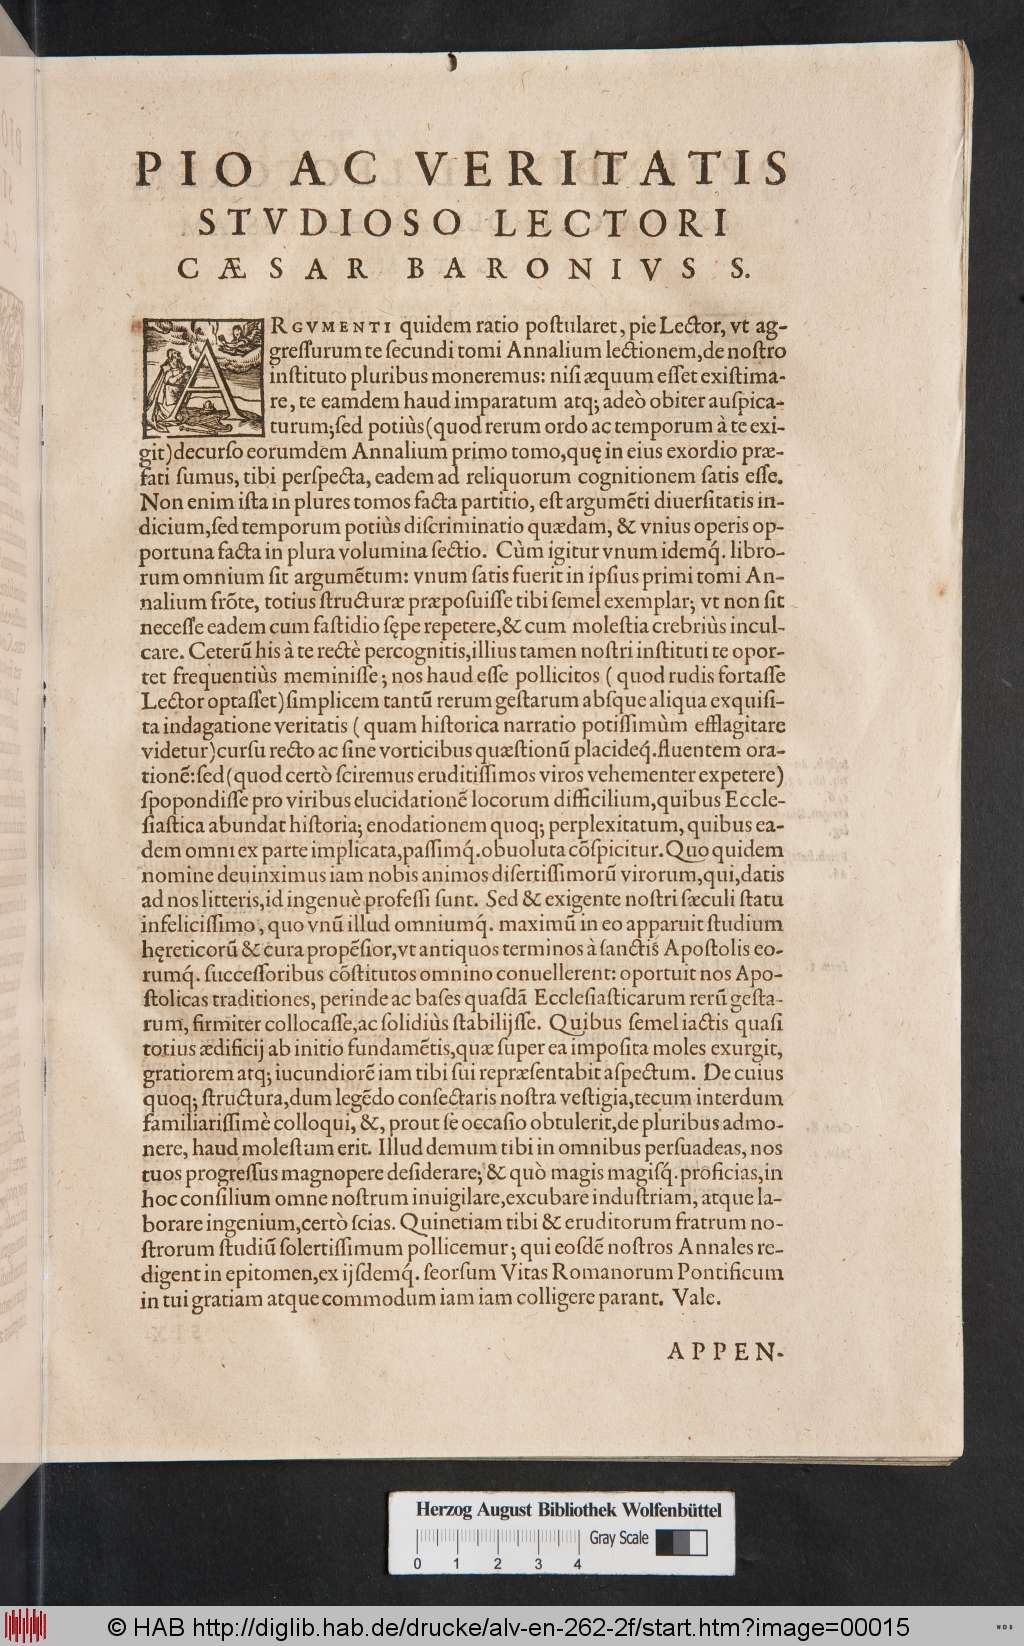 PIO AC VERITATIS
STVDIOSO LECTORI
CÆSAR BARONIVS S.
ARGVMENTI quidem ratio poſtularet, pie Lector, vt ag-
greſſurum te ſecundi tomi Annalium lectionem, de noſtro
inſtituto pluribus moneremus: niſi æquum eſſet exiſtima-
re, te eamdem haud imparatum atq; adeò obiter auſpica-
turum; ſed potiùs (quod rerum ordo ac temporum à te exi-
git) decurſo eorumdem Annalium primo tomo, quę in eius exordio præ-
fati ſumus, tibi perſpecta, eadem ad reliquorum cognitionem ſatis eſſe.
Non enim iſta in plures tomos facta partitio, eſt argumẽti diuerſitatis in-
dicium, ſed temporum potiùs diſcriminatio quædam, & vnius operis op-
portuna facta in plura volumina ſectio. Cùm igitur vnum idemq́. libro-
rum omnium ſit argumẽtum: vnum ſatis fuerit in ipſius primi tomi An-
nalium frõte, totius ſtructuræ præpoſuiſſe tibi ſemel exemplar; vt non ſit
neceſſe eadem cum faſtidio ſępe repetere, & cum moleſtia crebriùs incul-
care. Ceterũ his à te rectè percognitis, illius tamen noſtri inſtituti te opor-
tet frequentiùs meminiſſe; nos haud eſſe pollicitos ( quod rudis fortaſſe
Lector optaſſet) ſimplicem tantũ rerum geſtarum abſque aliqua exquiſi-
ta indagatione veritatis ( quam hiſtorica narratio potiſſimùm efflagitare
videtur) curſu recto ac ſine vorticibus quæſtionũ placideq́. fluentem ora-
tionẽ: ſed (quod certò ſciremus eruditiſſimos viros vehementer expetere)
ſpopondiſſe pro viribus elucidationẽ locorum difficilium, quibus Eccle-
ſiaſtica abundat hiſtoria; enodationem quoq; perplexitatum, quibus ea-
dem omni ex parte implicata, paſſimq́. obuoluta cõſpicitur. Quo quidem
nomine deuinximus iam nobis animos diſertiſſimorũ virorum, qui, datis
ad nos litteris, id ingenuè profeſſi ſunt. Sed & exigente noſtri ſæculi ſtatu
infeliciſſimo, quo vnũ illud omniumq́. maximũ in eo apparuit ſtudium
hęreticorũ & cura propẽſior, vt antiquos terminos à ſanctis Apoſtolis eo-
rumq́. ſucceſſoribus cõſtitutos omnino conuellerent: oportuit nos Apo-
ſtolicas traditiones, perinde ac baſes quaſdã Eccleſiaſticarum rerũ geſta-
rum, firmiter collocaſſe, ac ſolidiùs ſtabilijſſe. Quibus ſemel iactis quaſi
totius ædificij ab initio fundamẽtis, quæ ſuper ea impoſita moles exurgit,
gratiorem atq; iucundiorẽ iam tibi ſui repræſentabit aſpectum. De cuius
quoq; ſtructura, dum legẽdo conſectaris noſtra veſtigia, tecum interdum
familiariſſimè colloqui, &, prout ſe occaſio obtulerit, de pluribus admo-
nere, haud moleſtum erit. Illud demum tibi in omnibus perſuadeas, nos
tuos progreſſus magnopere deſiderare; & quò magis magiſq́. proficias, in
hoc conſilium omne noſtrum inuigilare, excubare induſtriam, atque la-
borare ingenium, certò ſcias. Quinetiam tibi & eruditorum fratrum no-
ſtrorum ſtudiũ ſolertiſſimum pollicemur; qui eoſdẽ noſtros Annales re-
digent in epitomen, ex ijſdemq́. ſeorſum Vitas Romanorum Pontificum
in tui gratiam atque commodum iam iam colligere parant. Vale.
APPEN-
Herzog August Bibliothek Wolfenbüttel
Gray Scale
0 1 2 3 4
© HAB http://diglib.hab.de/drucke/alv-en-262-2f/start.htm?image=00015